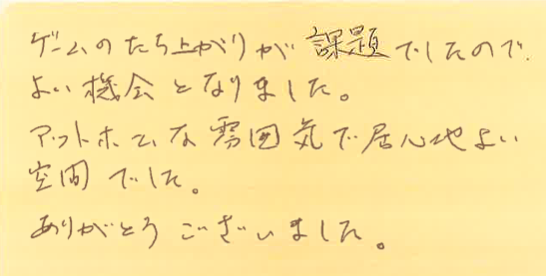 ゲームのたち上がりが課題でしたので、
よい機会となりました。
アットホームな雰囲気で居心地よい
空間でした。
ありがとうございました。